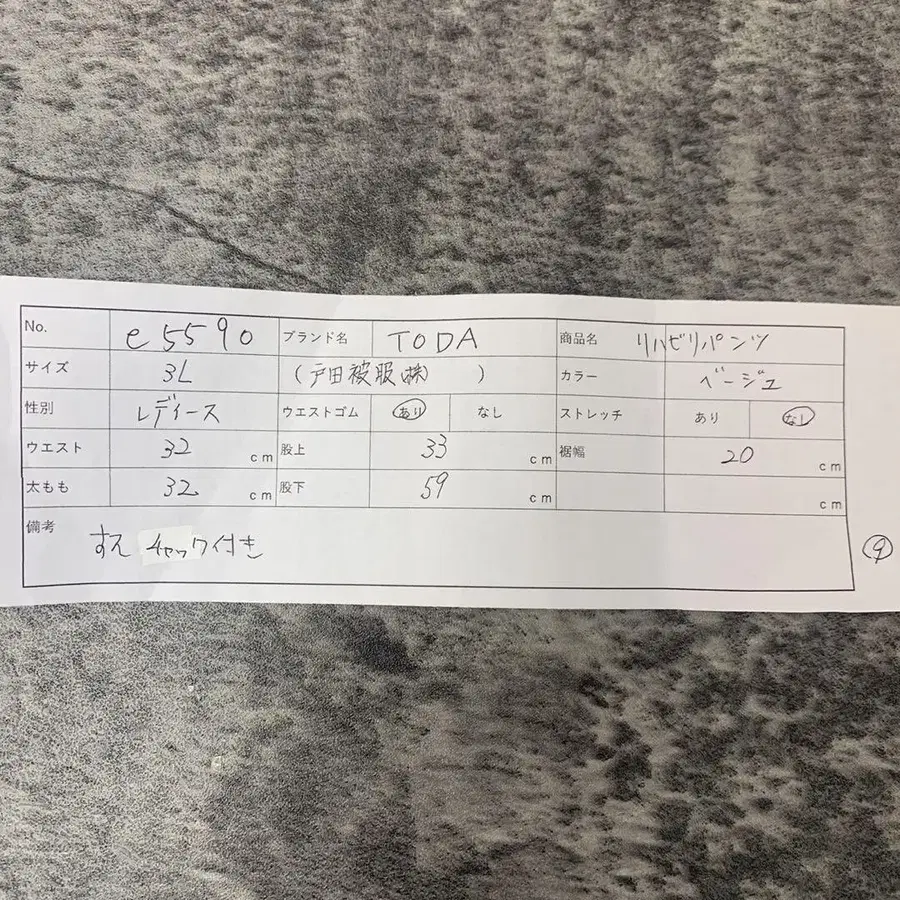 No. e5590 ブランド名 TODA 商品名 リハビリパンツ
サイズ 3L (戸田被服㈱ ) カラー ベージュ
性別 レディース ウエストゴム あり なし ストレッチ あり なし
ウエスト 32 cm 股上 33 cm 裾幅 20 cm
太もも 32 cm 股下 59 cm cm
備考
すえ チャック付き
9